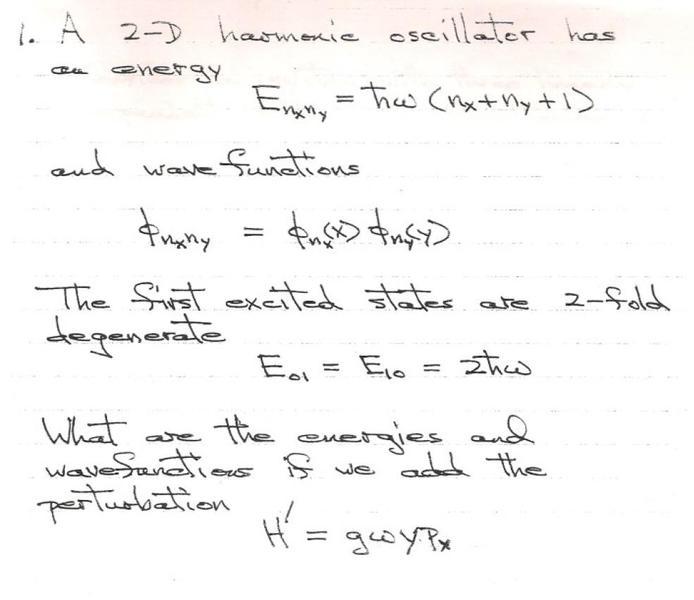 1. A 2-D harmonic oscillator has
an energy
E_{n_x n_y} = ħω (n_x + n_y + 1)
and wave functions
ϕ_{n_x n_y} = ϕ_{n_x}(x) ϕ_{n_y}(y)
The first excited states are 2-fold
degenerate
E_{01} = E_{10} = 2ħω
What are the energies and
wavefunctions if we add the
perturbation
H' = gωyP_x